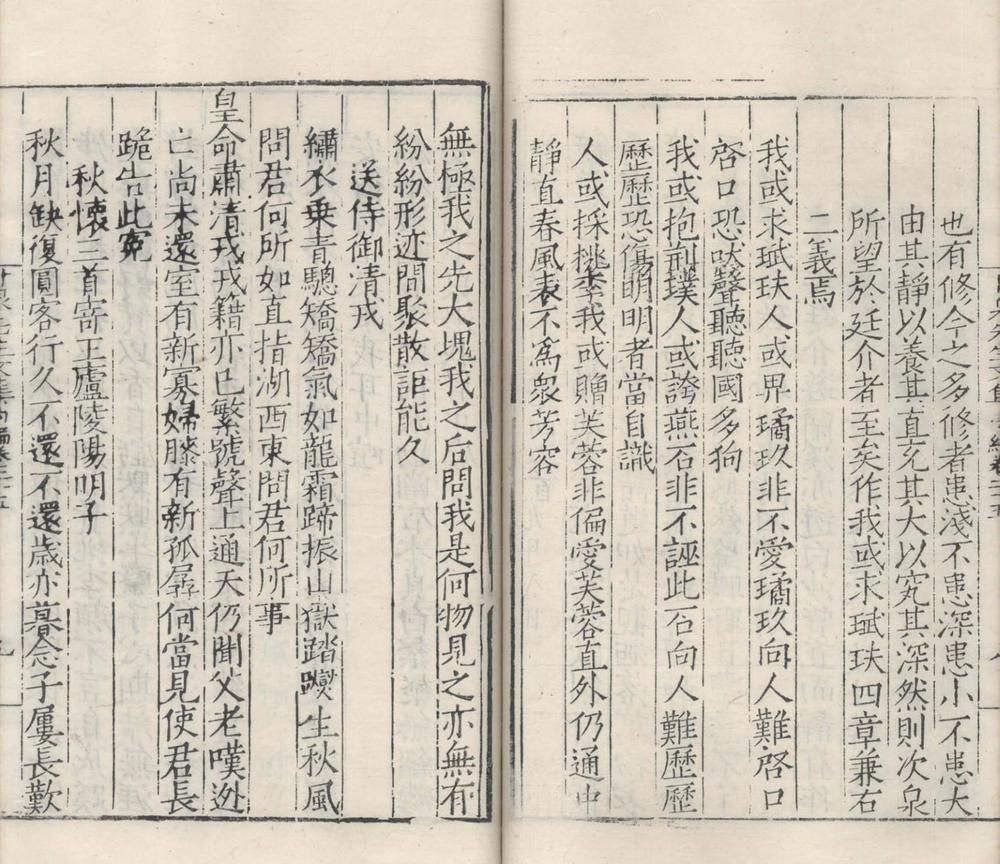 也有修今之多修者患淺不患深患小不患大
由其靜以養其直充其大以究其深然則次泉
所望於廷介者至矣作我或求珷玞四章兼右
二義焉
我或求珷玞人或畀璚玖非不愛璚玖向人難啓口
啓口恐吠聲聽聽國多狗
我或抱荊璞人或誇燕石非不誣此石向人難歷歷
歷歷恐傷明明者當自識
人或採桃李我或贈芙蓉非偏愛芙蓉直外仍通中
靜直春風表不爲衆芳容
無極我之先大塊我之后問我是何物見之亦無有
紛紛形迹間聚散詎能久
送侍御清戎
繡衣乗青驄矯矯氣如龍霜蹄振山嶽踏躞生秋風
問君何所如直指湖西東問君何所事
皇命肅清戎戎籍亦已繁號聲上通天仍聞父老嘆逊
亡尚未還室有新寡婦膝有新孤孱何當見使君長
跪告此寃
秋懷三首寄王廬陵陽明子
秋月缺復圓客行久不還不還歲亦暮念子屢長歎